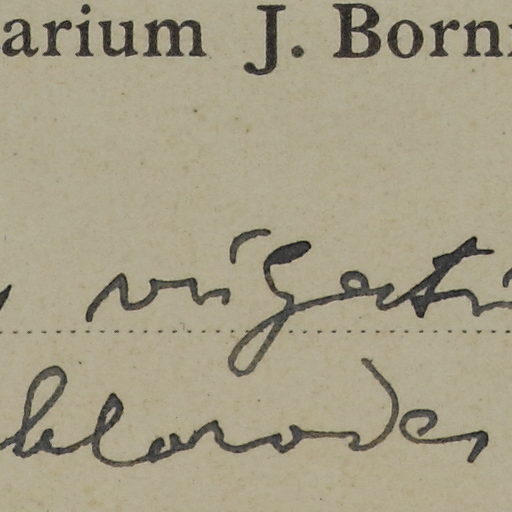 arium J. Born
virgati
hlorodes